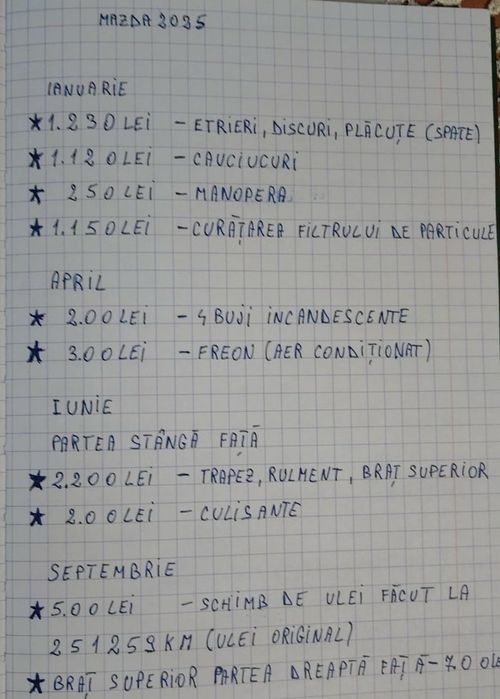 MAZDA 2025
IANUARIE
★ 1.230 LEI - ETRIERI, DISCURI, PLĂCUȚE (SPATE)
★ 1.120 LEI - CAUCIUCURI
★ 250 LEI - MANOPERA
★ 1.150 LEI - CURĂȚAREA FILTRULUI DE PARTICULE
APRIL
★ 2.00 LEI - 4 BUJI INCANDESCENTE
★ 3.00 LEI - FREON (AER CONDIȚIONAT)
IUNIE
PARTEA STÂNGĂ FAȚĂ
★ 2.200 LEI - TRAPEZ, RULMENT, BRAȚ SUPERIOR
★ 2.00 LEI - CULISANTE
SEPTEMBRIE
★ 5.00 LEI - SCHIMB DE ULEI FĂCUT LA
251259 KM (ULEI ORIGINAL)
★ BRAȚ SUPERIOR PARTEA DREAPTĂ FAȚĂ - 7.00 LE